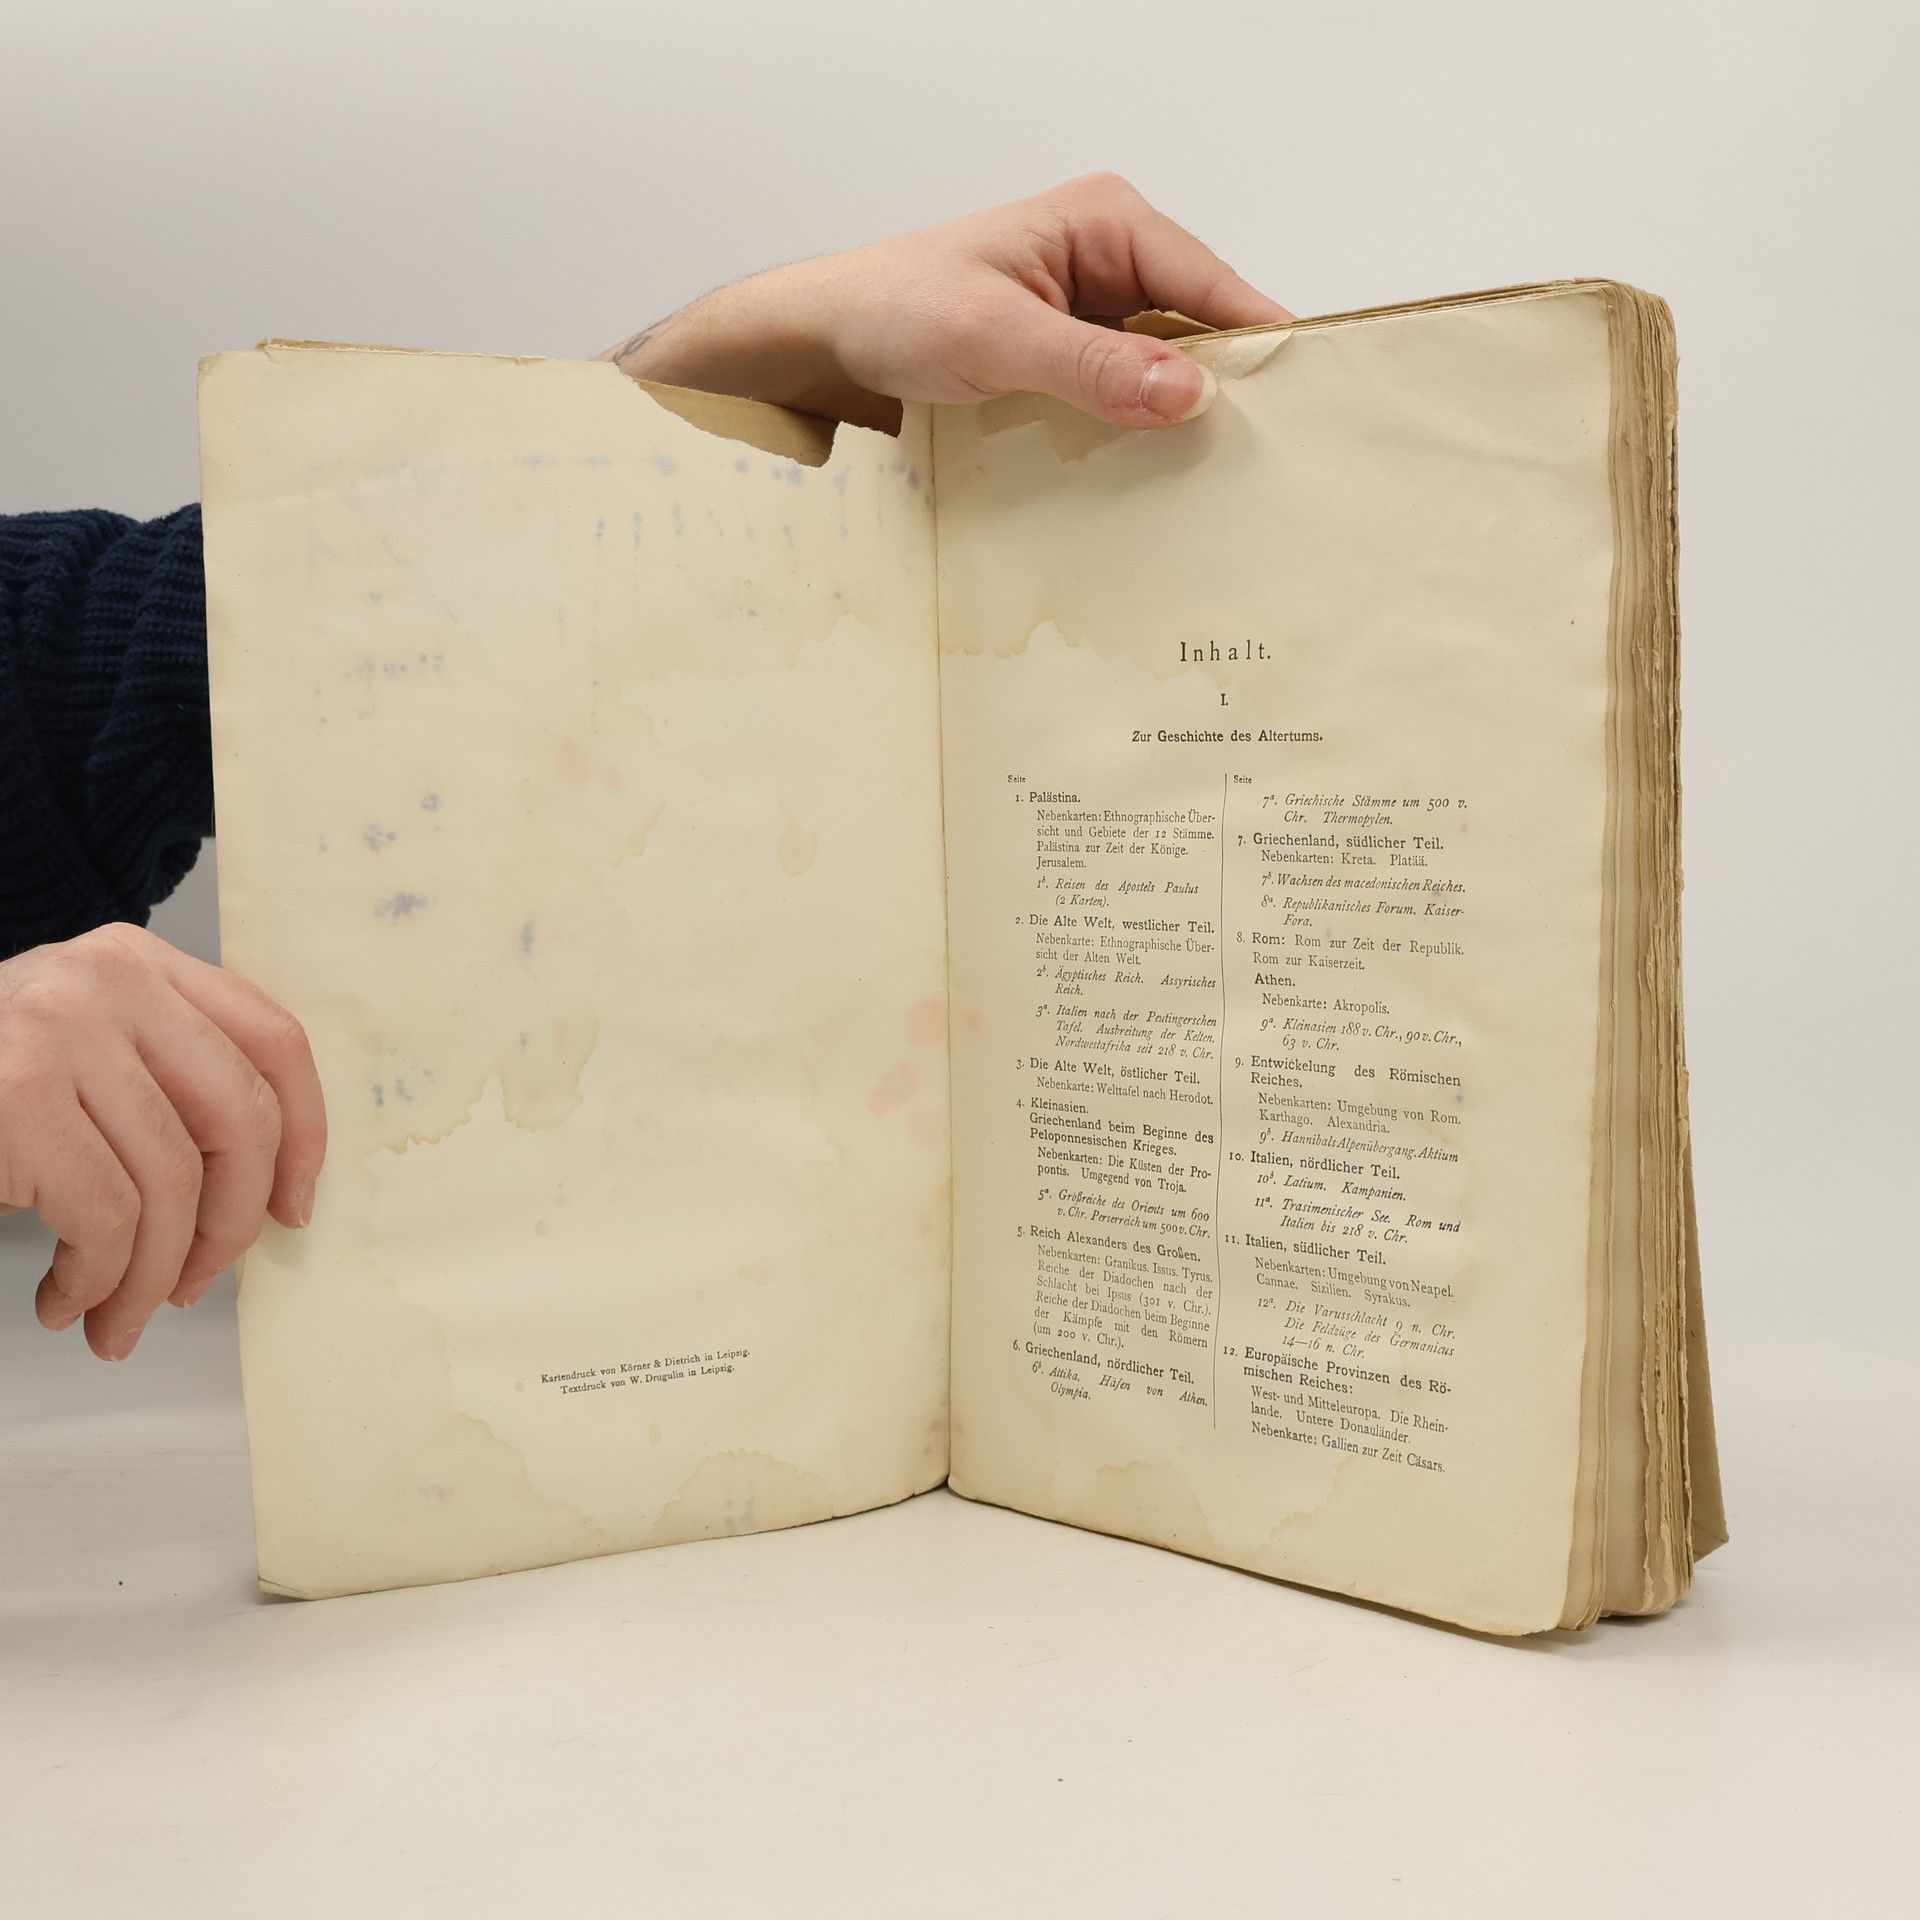 Kartendruck von Körner & Dietrich in Leipzig.
Textdruck von W. Drugulin in Leipzig.
Inhalt.
I.
Zur Geschichte des Altertums.
Seite
1. Palästina.
Nebenkarten: Ethnographische Über-
sicht und Gebiete der 12 Stämme.
Palästina zur Zeit der Könige.
Jerusalem.
1b. Reisen des Apostels Paulus
(2 Karten).
2. Die Alte Welt, westlicher Teil.
Nebenkarte: Ethnographische Über-
sicht der Alten Welt.
2b. Ägyptisches Reich. Assyrisches
Reich.
3a. Italien nach der Peutingerschen
Tafel. Ausbreitung der Kelten.
Nordwestafrika seit 218 v. Chr.
3. Die Alte Welt, östlicher Teil.
Nebenkarte: Welttafel nach Herodot.
4. Kleinasien.
Griechenland beim Beginne des
Peloponnesischen Krieges.
Nebenkarten: Die Küsten der Pro-
pontis. Umgegend von Troja.
5a. Großreiche des Orients um 600
v. Chr. Perserreich um 500 v. Chr.
5. Reich Alexanders des Großen.
Nebenkarten: Granikus. Issus. Tyrus.
Reiche der Diadochen nach der
Schlacht bei Ipsus (301 v. Chr.).
Reiche der Diadochen beim Beginne
der Kämpfe mit den Römern
(um 200 v. Chr.).
6. Griechenland, nördlicher Teil.
6b. Attika. Häfen von Athen.
Olympia.
Seite
7a. Griechische Stämme um 500 v.
Chr. Thermopylen.
7. Griechenland, südlicher Teil.
Nebenkarten: Kreta. Platää.
7b. Wachsen des macedonischen Reiches.
8a. Republikanisches Forum. Kaiser-
Fora.
8. Rom: Rom zur Zeit der Republik.
Rom zur Kaiserzeit.
Athen.
Nebenkarte: Akropolis.
9a. Kleinasien 188 v. Chr., 90 v. Chr.,
63 v. Chr.
9. Entwickelung des Römischen
Reiches.
Nebenkarten: Umgebung von Rom.
Karthago. Alexandria.
9b. Hannibals Alpenübergang. Aktium
10. Italien, nördlicher Teil.
10b. Latium. Kampanien.
11a. Trasimenischer See. Rom und
Italien bis 218 v. Chr.
11. Italien, südlicher Teil.
Nebenkarten: Umgebung von Neapel.
Cannae. Sizilien. Syrakus.
12a. Die Varusschlacht 9 n. Chr.
Die Feldzüge des Germanicus
14—16 n. Chr.
12. Europäische Provinzen des Rö-
mischen Reiches:
West- und Mitteleuropa. Die Rhein-
lande. Untere Donauländer.
Nebenkarte: Gallien zur Zeit Cäsars.